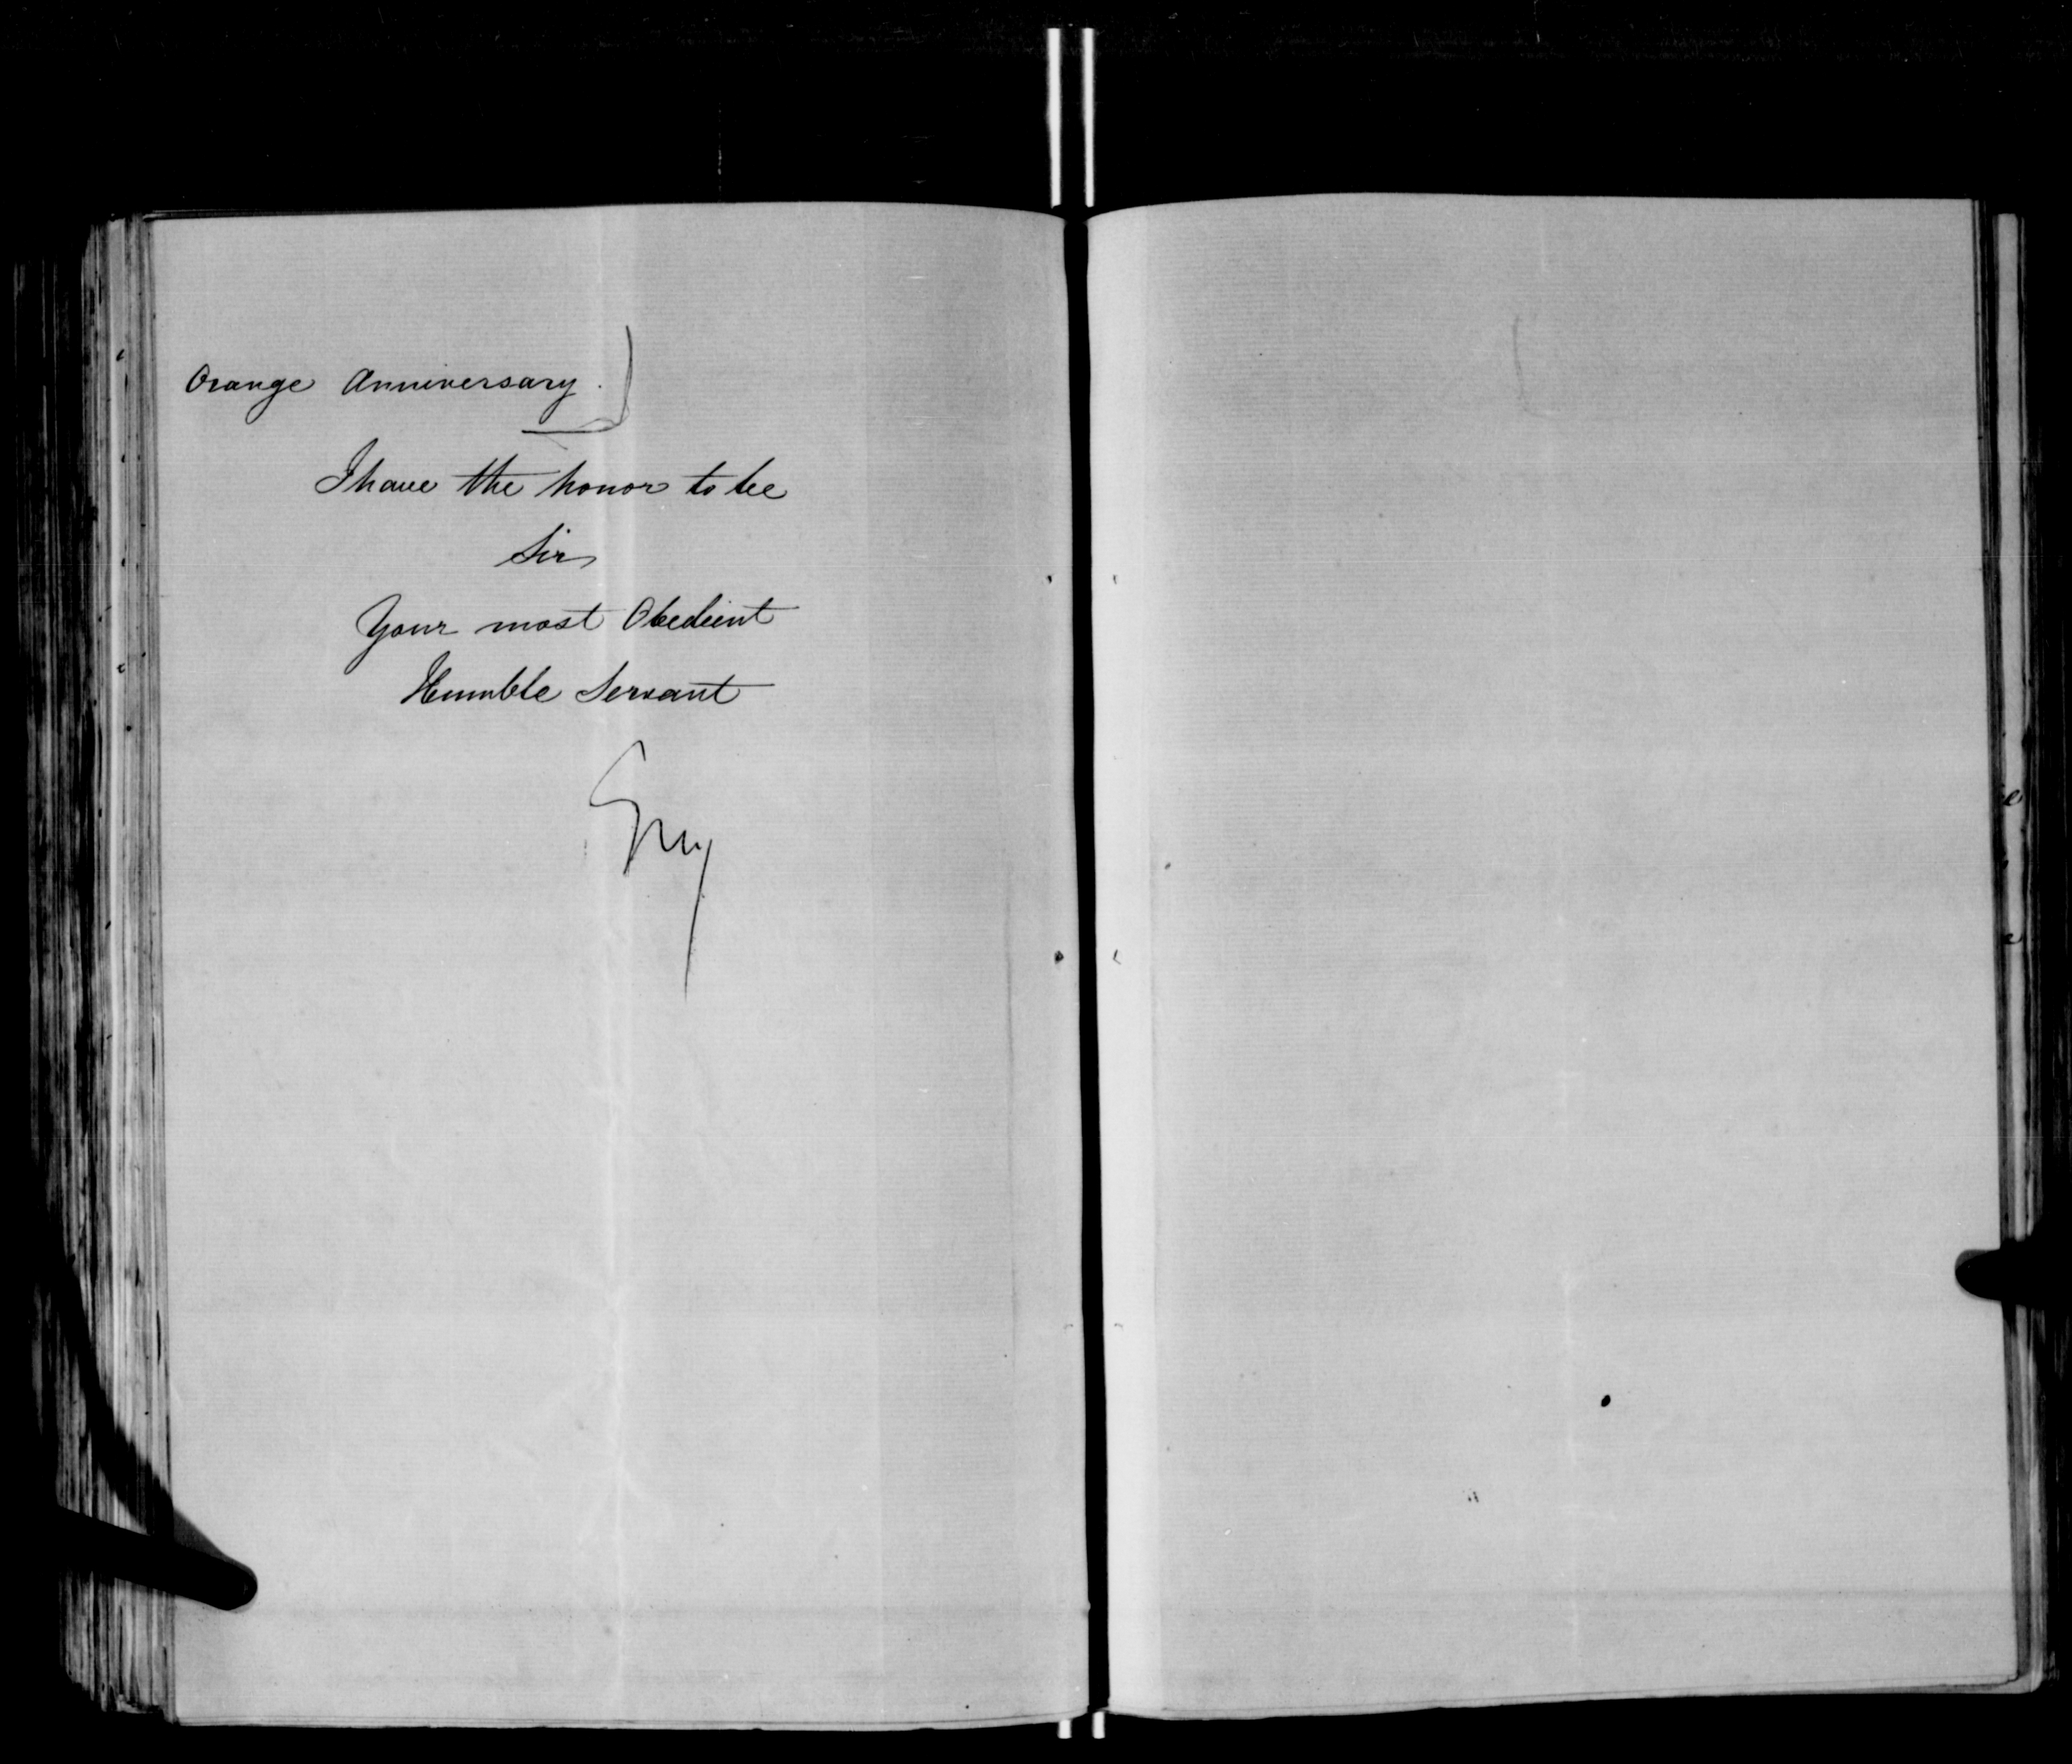 Orange Anniversary.
I have the honor to be
Sir
Your most Obedient
Humble Servant